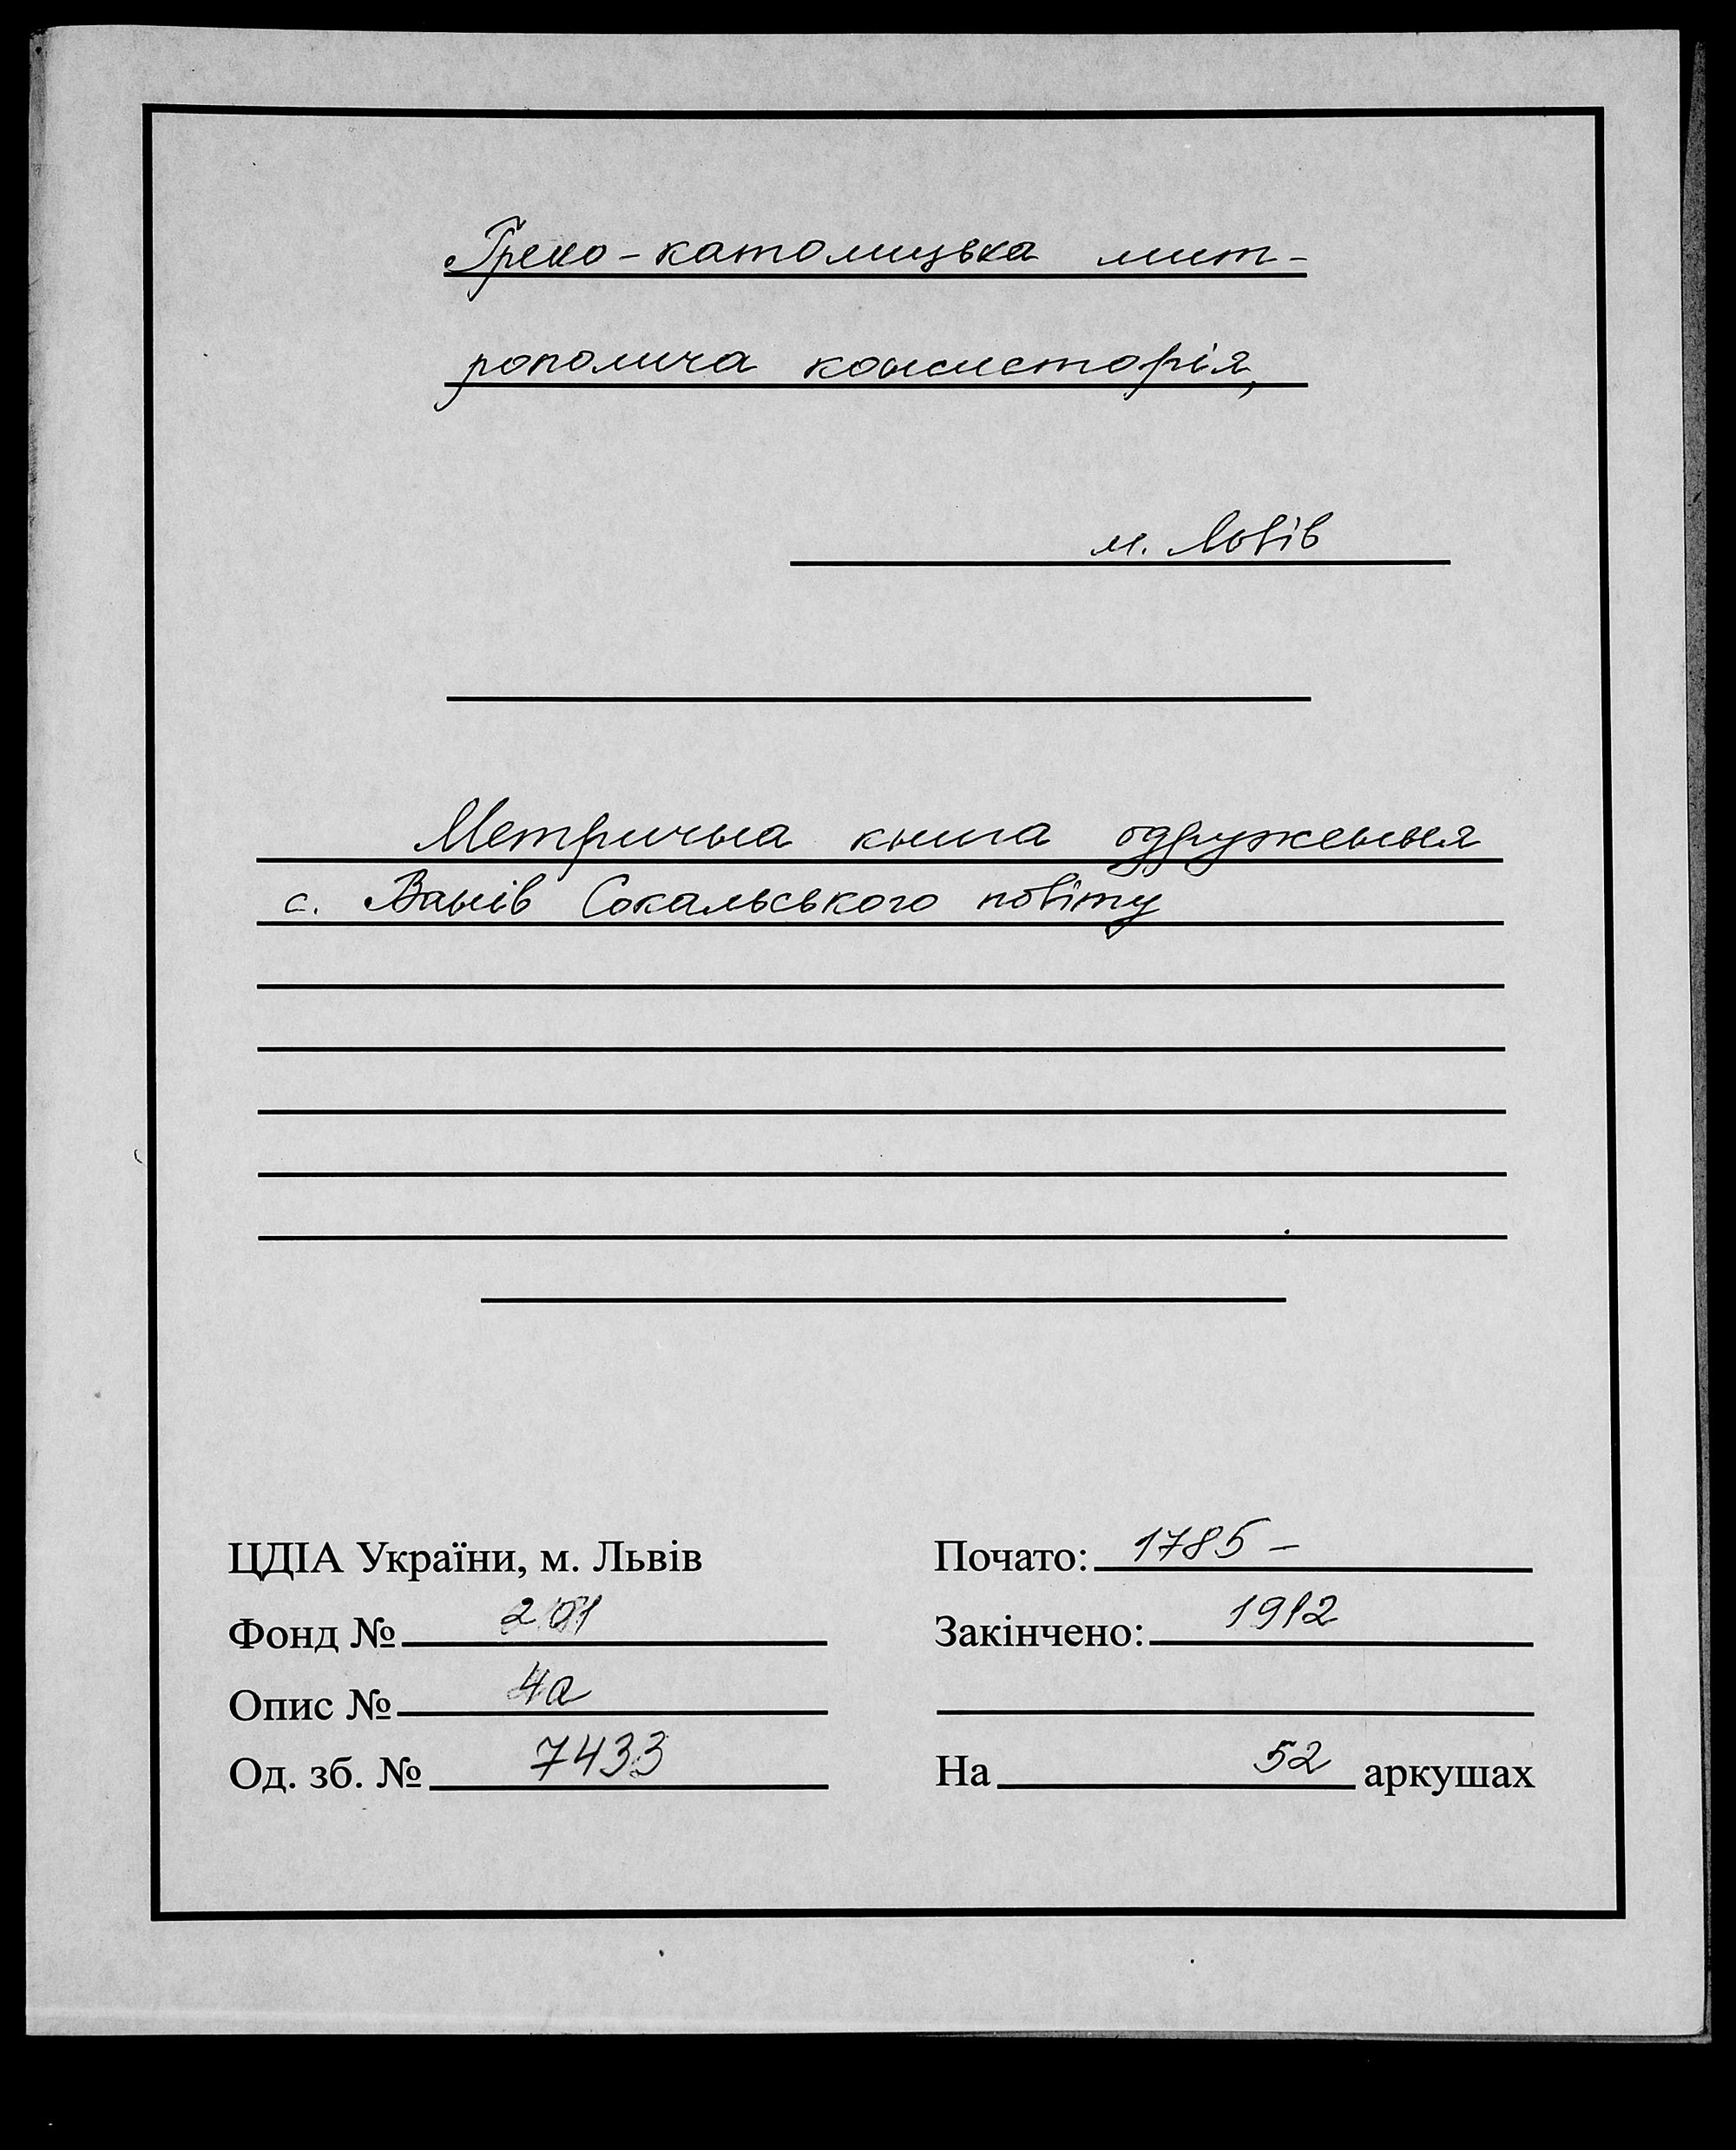 Греко-католицька мит-
рополича консисторія,
м. Львів
Метрична книга одруження
с. Ванів Сокальського повіту
ЦДІА України, м. Львів
Фонд № 201
Опис № 4а
Од. зб. № 7433
Почато: 1785 -
Закінчено: 1912
На 52 аркушах